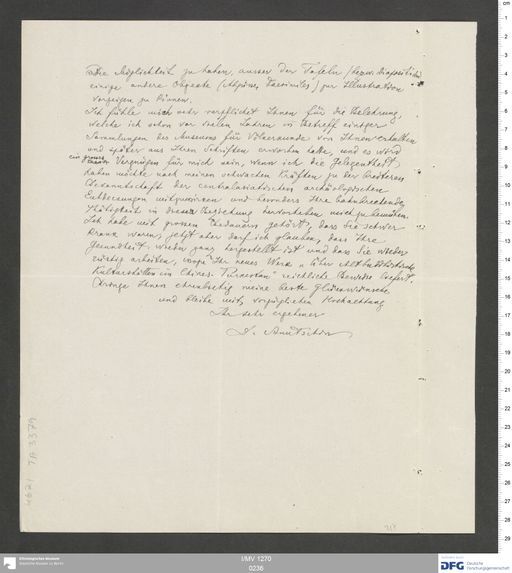 Die Möglichkeit zu haben, ausser den Tafeln (bezw. Diapositiven)
einige andere Objecte (Abgüsse, Facsimiles) zur Illustration
vorzeigen zu können.
Ich fühle mich sehr verpflichtet Ihnen für die Belehrung,
welche ich schon vor vielen Jahren in Betreff einiger
Sammlungen des Museums für Völkerkunde von Ihnen erhalten
und später aus Ihren Schriften erworben habe, und es wird
ein grosses Vergnügen für mich sein, wenn ich die Gelegenheit
haben möchte nach meinen schwachen Kräften zu der breiteren
Bekanntschaft der centralasiatischen archäologischen
Entdeckungen mitzuwirken und besonders Ihre bahnbrechende
Thätigkeit in dieser Beziehung hervorheben mich zu bemühen.
Ich habe mit grossem Bedauern gehört, dass Sie schwer
krank waren, jetzt aber darf ich glauben, dass Ihre
Gesundheit wieder ganz hergestellt ist und dass Sie wieder
rüstig arbeiten, wofür Ihr neues Werk "über Altbuddhistische
Kultstätten in Chines. Turkestan" reichliche Beweise liefert.
Bringe Ihnen ehrerbietig meine beste Glückwünsche
und bleibe mit vorzüglicher Hochachtung
Ihr sehr ergebener
D. Anutschin
4621 TA 3379
218
Ethnologisches Museum
Staatliche Museen zu Berlin
I/MV 1270
0236
DFG Deutsche
Forschungsgemeinschaft
cm
1
2
3
4
5
6
7
8
9
10
11
12
13
14
15
16
17
18
19
20
21
22
23
24
25
26
27
28
29